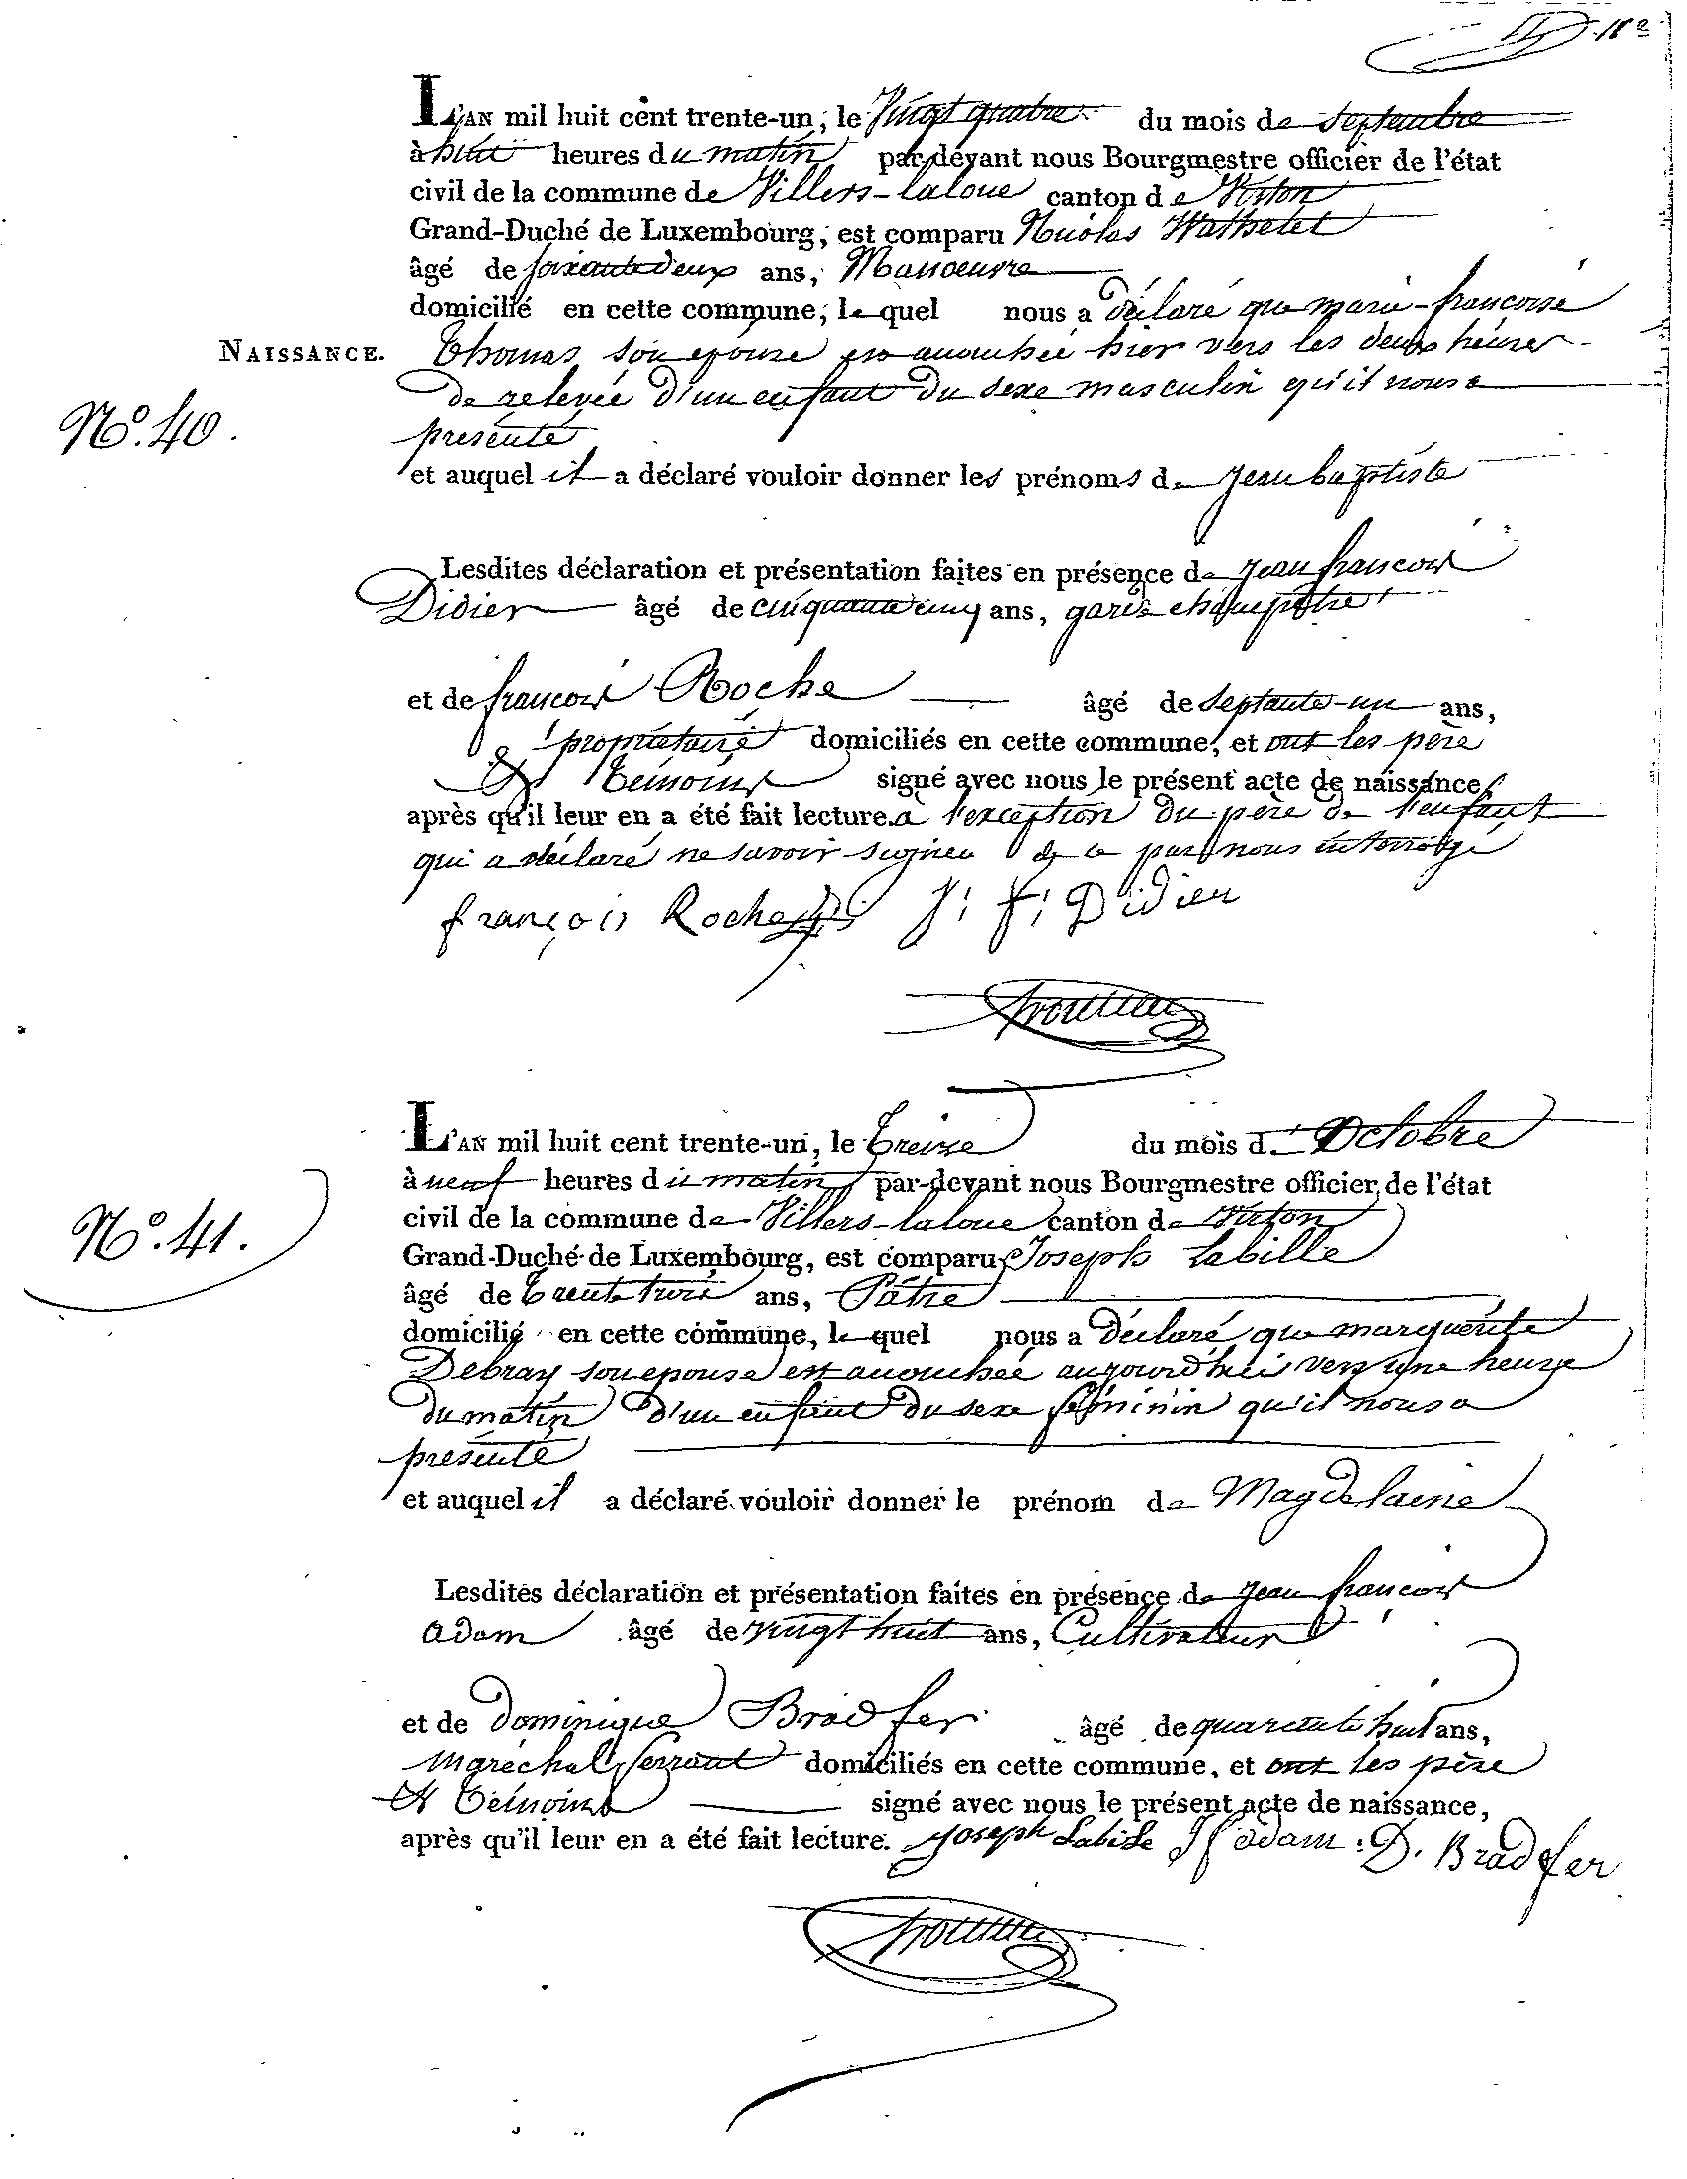 18e
L'AN mil huit cent trente-un, le Vingt quatre du mois de Septembre
à huit heures du matin par-devant nous Bourgmestre officier de l'état
civil de la commune de Villers-laloue canton de Virton
Grand-Duché de Luxembourg, est comparu Nicolas Wathelet
âgé de soixante deux ans, Manoeuvre
domicilié en cette commune, lequel nous a déclaré que marie-françoise
NAISSANCE. Thomas son epouse est accouchée hier vers les deux heures
de relevée d'un enfant du sexe masculin qu'il nous a
No. 40.
présenté
et auquel il a déclaré vouloir donner les prénoms de Jean baptiste
Lesdites déclaration et présentation faites en présence de Jean françois
Didier âgé de cinquante cinq ans, garde champêtre
et de françois Roche âgé de Septante-un ans,
propriétaire domiciliés en cette commune, et ont les père
& Témoins signé avec nous le présent acte de naissance
après qu'il leur en a été fait lecture à l'exception du père de l'enfant
qui a déclaré ne savoir signer de ce par nous interrogé
françois Roche J: f: Didier
L'AN mil huit cent trente-un, le Treize du mois d'Octobre
à neuf heures du matin par-devant nous Bourgmestre officier de l'état
No. 41.
civil de la commune de Villers-laloue canton de Virton
Grand-Duché de Luxembourg, est comparu Joseph Labille
âgé de Trente trois ans, Pâtre
domicilié en cette commune, lequel nous a déclaré que marguérite
Debray son epouse est accouchée aujourd'hui vers une heure
du matin d'un enfant du sexe féminin qu'il nous a
présenté
et auquel il a déclaré vouloir donner le prénom de Magdelaine
Lesdites déclaration et présentation faites en présence de Jean françois
adam âgé de vingt huit ans, Cultivateur
et de Dominique Bradfer âgé de quarante huit ans,
Maréchal ferrant domiciliés en cette commune, et ont les père
et Témoins signé avec nous le présent acte de naissance,
après qu'il leur en a été fait lecture. Joseph Labile J f adam : D. Bradfer